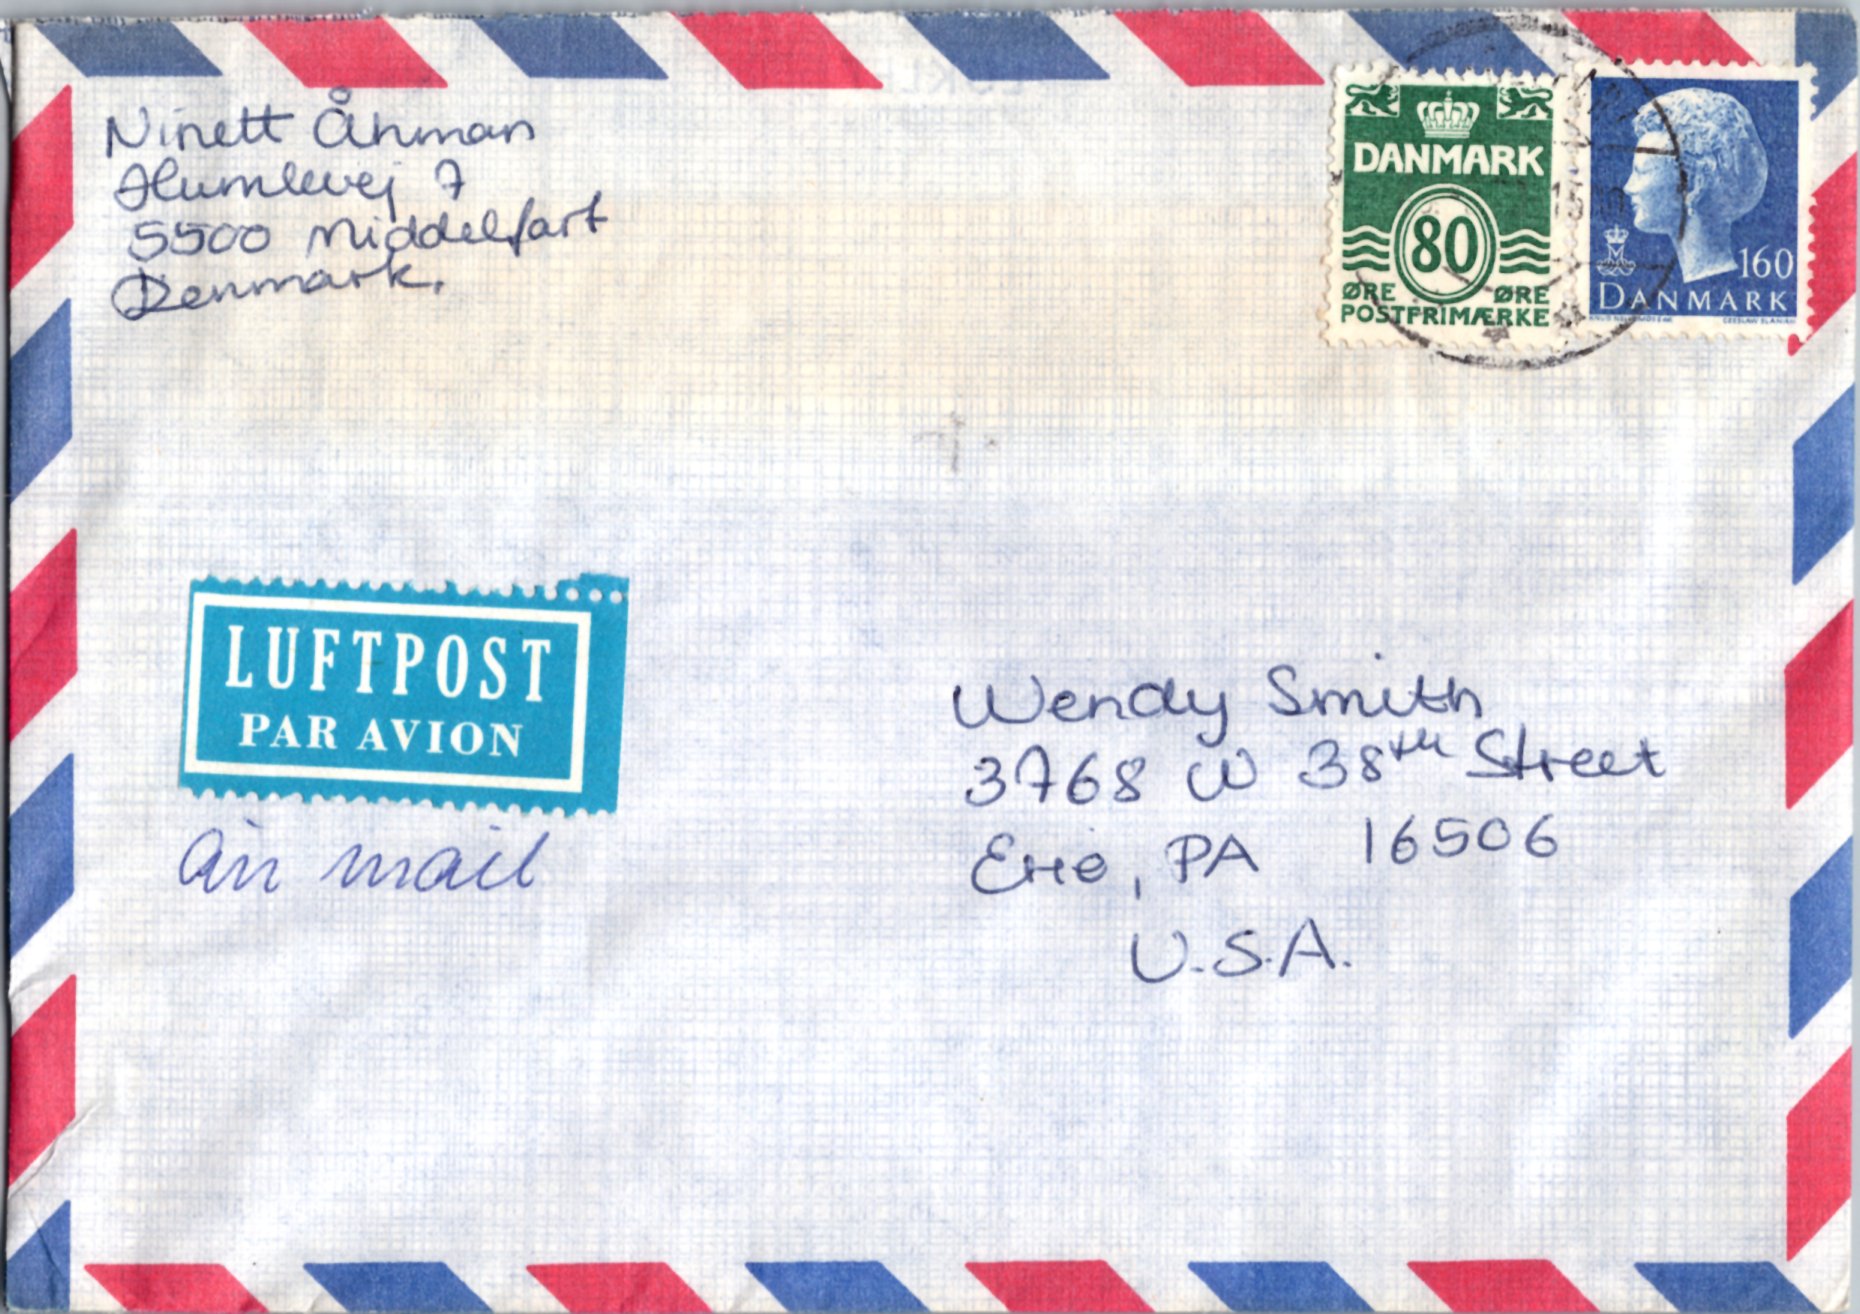 Ninett Åhman
Humlevej 7
5500 Middelfart
Denmark.
DANMARK
80
ØRE ØRE
POSTFRIMÆRKE
160
DANMARK
LUFTPOST
PAR AVION
air mail
Wendy Smith
3768 W 38th Street
Erie, PA 16506
U.S.A.